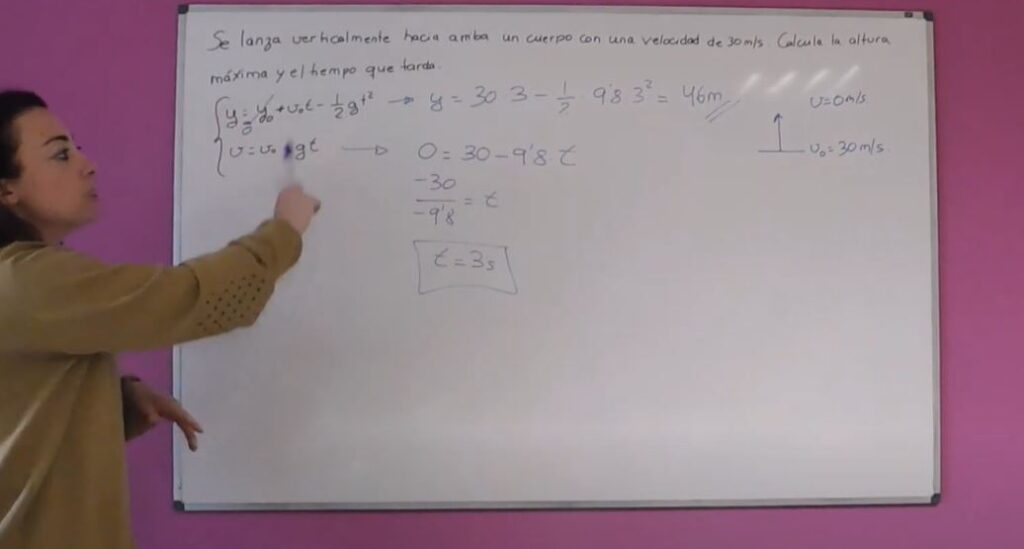 Se lanza verticalmente hacia arriba un cuerpo con una velocidad de 30m/s. Calcula la altura
máxima y el tiempo que tarda.
y = y₀ + v₀t - 1/2 gt² → y = 30 3 - 1/2 · 9'8 3² = 46m
v = v₀ gt → 0 = 30 - 9'8 · t
-30/-9'8 = t
t = 3s
v = 0m/s
v₀ = 30m/s